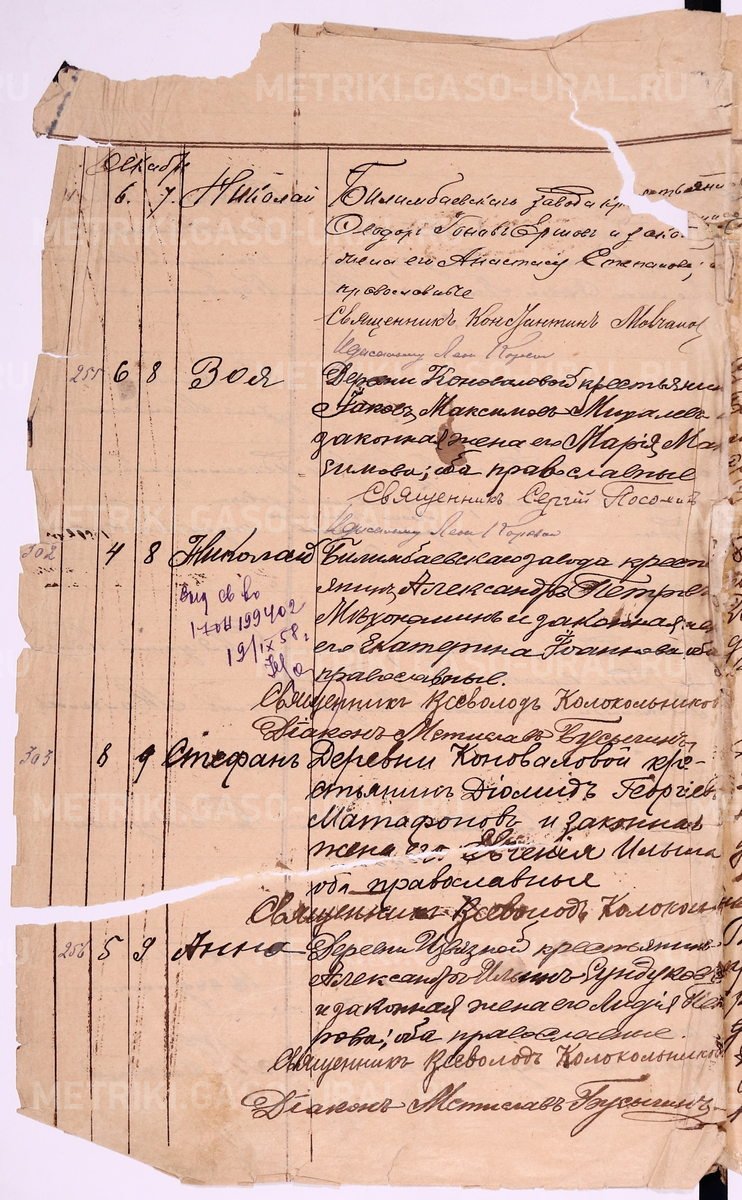 METRIKI.GASO-URAL.RU
Декабрь
6. 7. Николай Билимбаевскаго завода
Ѳеодоръ Ершовъ и закон
его Анастасія Степанова;
православные
Священникъ Константинъ
255 6 8 Зоя Деревни Коноваловой крестьянинъ
Іаковъ Максимовъ Михалевъ
законная жена его Марія Ма
имова; оба православные
Священникъ Сергій
302 4 8 Николай Билимбаевскаго завода крест
янинъ Александръ Петровъ
и законная же
его Екатерина Іоаннова оба
православные.
199402
19/IX 58 г
Священникъ Всеволодъ Колокольниковъ
Діаконъ Мстиславъ Бусыгинъ
303 8 9 Стефанъ Деревни Коноваловой кре-
стьянинъ Діомидъ Георгіев
Матафоновъ и законная
жена его Евгенія Ильина
оба православные
Священникъ Всеволодъ Колокольн
256 5 9 Анна Деревни Извѣзной крестьянинъ
Александръ Ильинъ Сундуковъ
и законная жена его Лидія Пет
рова; оба православные.
Священникъ Всеволодъ Колокольниковъ
Діаконъ Мстиславъ Бусыгинъ